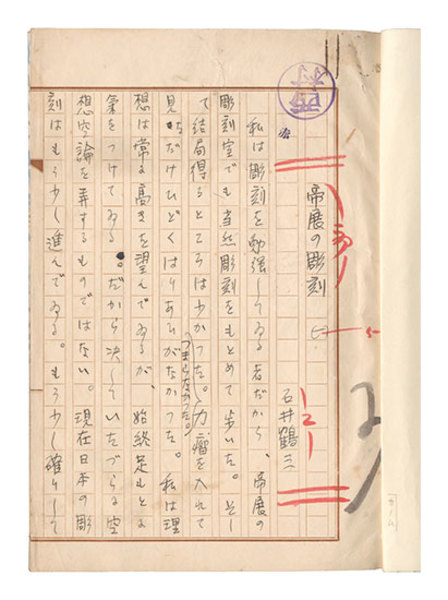 帝展の彫刻 (一)
石井鶴三
私は彫刻を勉強してゐる者だから、帝展の
彫刻室でも当然彫刻をもとめて歩いた。そし
て結局得るところは少かつた。力瘤を入れて
見ただけひどくはりあひがなかつた。私は理
つまらなかつた。
想は常に高きを望んでゐるが、始終足もとに
氣をつけてゐる。だから決していたづらに空
想空論を弄するものではない。現在日本の彫
刻はもう少し進んでゐる。もう少し確りして